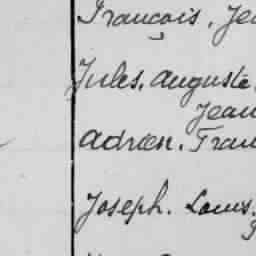 François, Je
Jules, Auguste,
Jean
Adrien, Fran
Joseph, Louis,